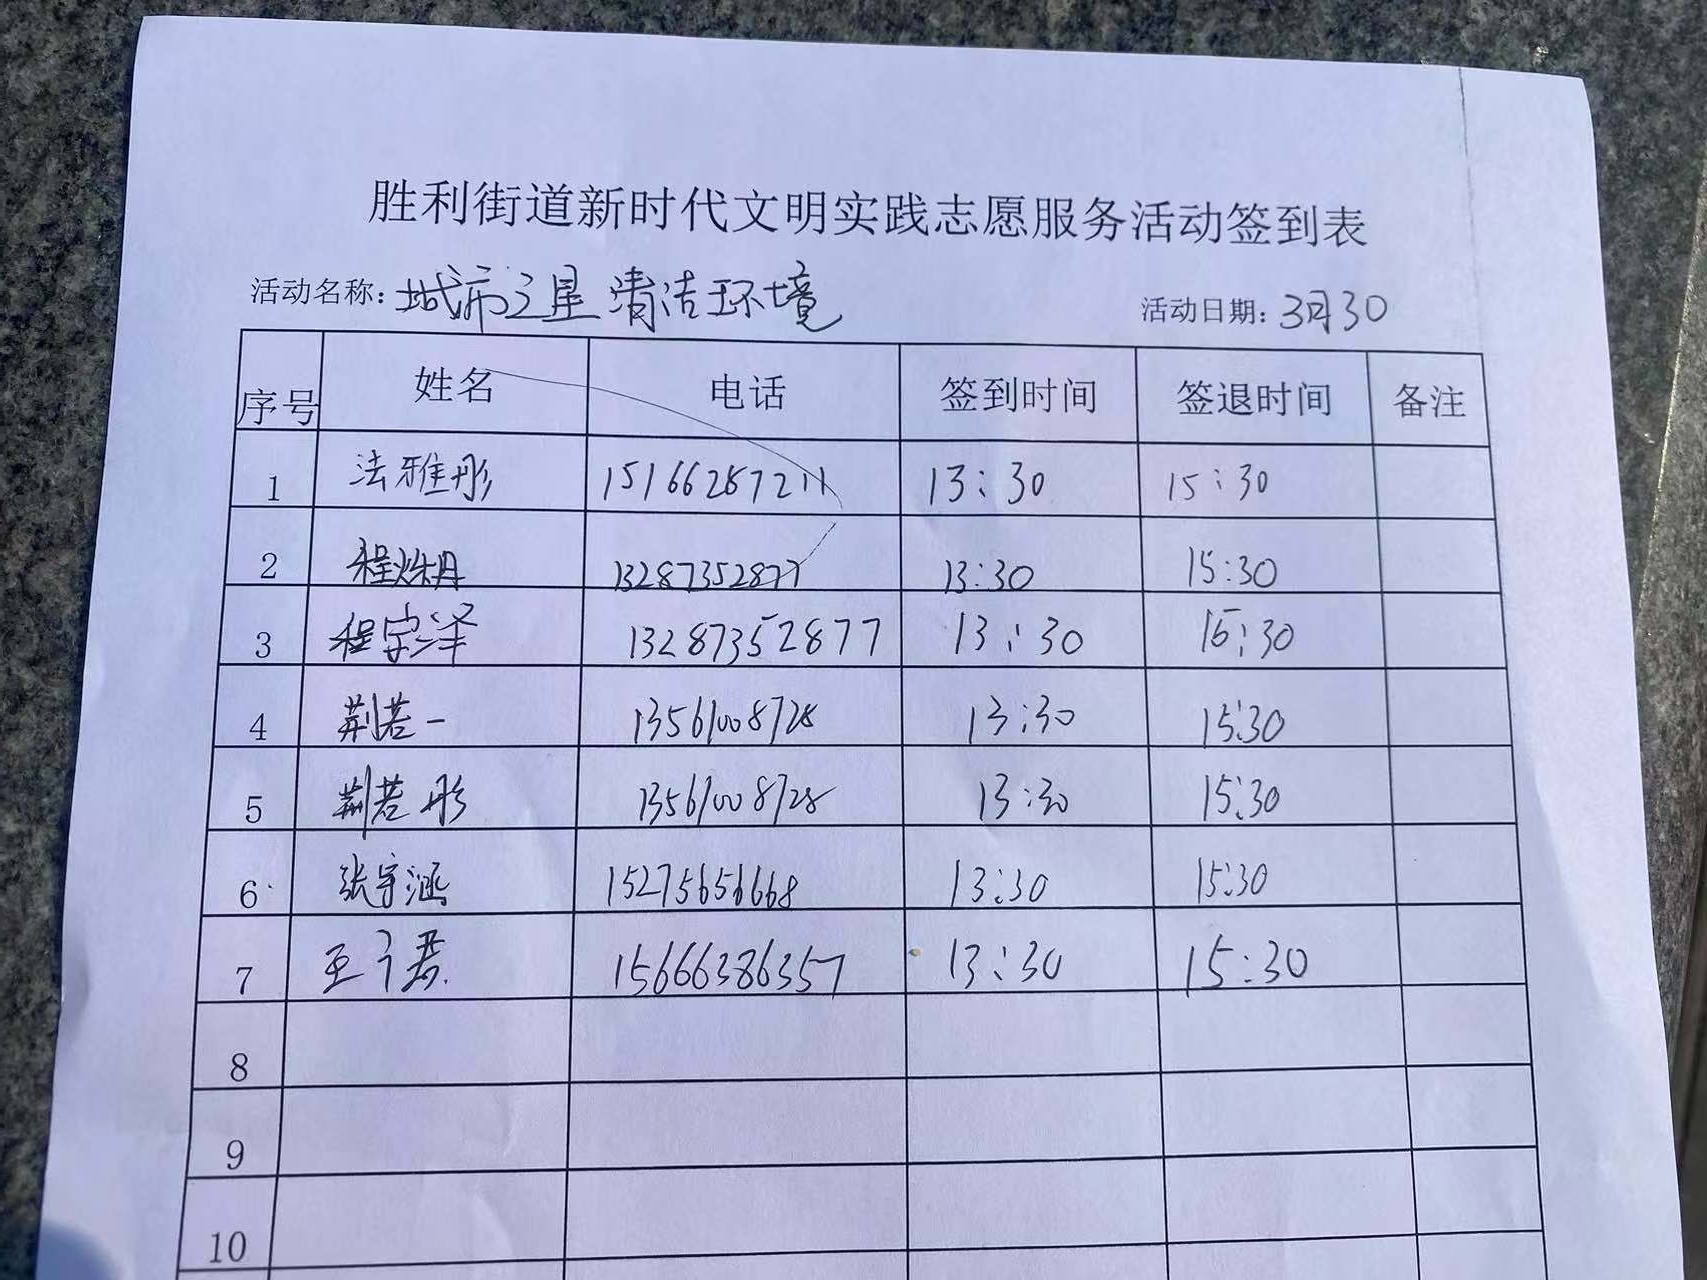 胜利街道新时代文明实践志愿服务活动签到表
活动名称: 城市之星清洁环境 活动日期: 3月30
序号 姓名 电话 签到时间 签退时间 备注
1 法雅彤 15166287211 13:30 15:30
2 程烁丹 13287352877 13:30 15:30
3 程宇泽 13287352877 13:30 15:30
4 荆若一 13561008728 13:30 15:30
5 荆若彤 13561008728 13:30 15:30
6 张宇涵 15275656668 13:30 15:30
7 王子君 15666386357 13:30 15:30
8
9
10